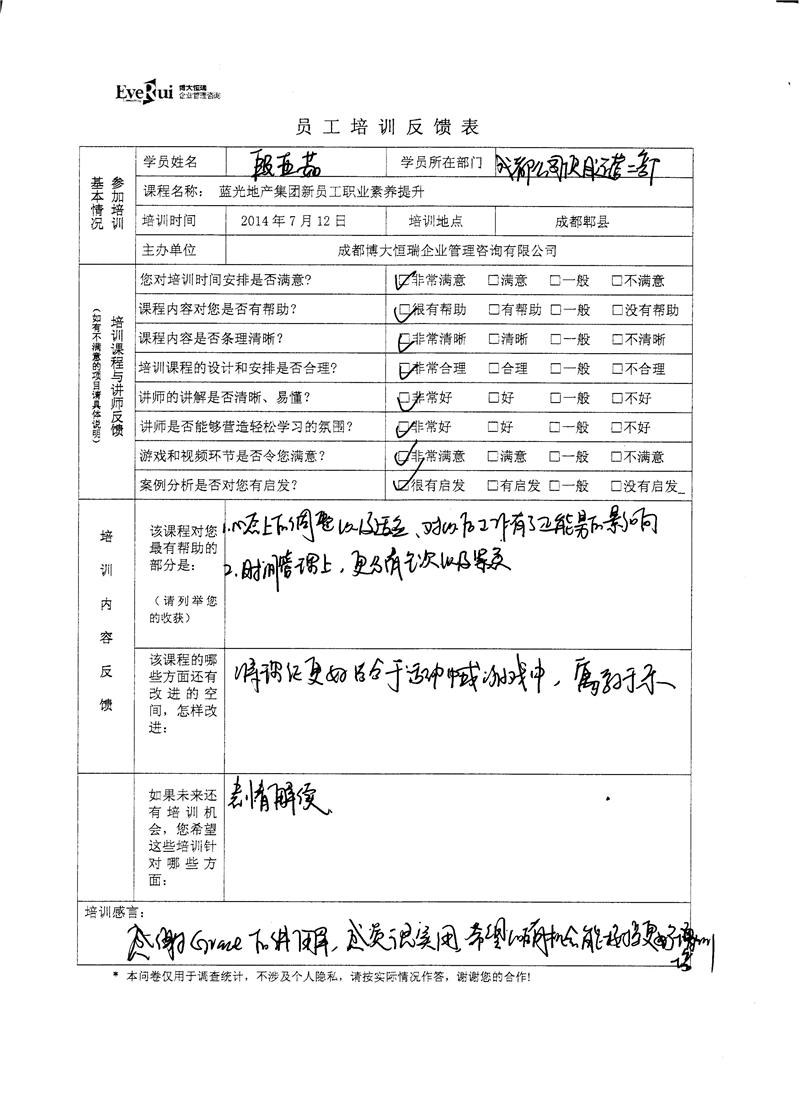 EveRui 博大恒瑞
企业管理咨询
员工培训反馈表
参加培训基本情况
学员姓名 段亚茹 学员所在部门 成都公司 运营二部
课程名称: 蓝光地产集团新员工职业素养提升
培训时间 2014年7月12日 培训地点 成都郫县
主办单位 成都博大恒瑞企业管理咨询有限公司
培训课程与讲师反馈
(如有不满意的项目请具体说明)
您对培训时间安排是否满意? ☑非常满意 □满意 □一般 □不满意
课程内容对您是否有帮助? ☑很有帮助 □有帮助 □一般 □没有帮助
课程内容是否条理清晰? ☑非常清晰 □清晰 □一般 □不清晰
培训课程的设计和安排是否合理? ☑非常合理 □合理 □一般 □不合理
讲师的讲解是否清晰、易懂? ☑非常好 □好 □一般 □不好
讲师是否能够营造轻松学习的氛围? ☑非常好 □好 □一般 □不好
游戏和视频环节是否令您满意? ☑非常满意 □满意 □一般 □不满意
案例分析是否对您有启发? ☑很有启发 □有启发 □一般 □没有启发
培训内容反馈
该课程对您
最有帮助的
部分是:
(请列举您
的收获)
1.心态上的调整以及适应、对以后工作有了正能量的影响
2.时间管理上,更有主次以及
该课程的哪
些方面还有
改进的空
间,怎样改
进:
将课程更好结合于活动或游戏中,寓教于乐
如果未来还
有培训机
会,您希望
这些培训针
对哪些方
面:
表情解读
培训感言:
感谢Grace的讲解,感觉很实用,希望以后有机会能接受更好培训
* 本问卷仅用于调查统计,不涉及个人隐私,请按实际情况作答,谢谢您的合作!